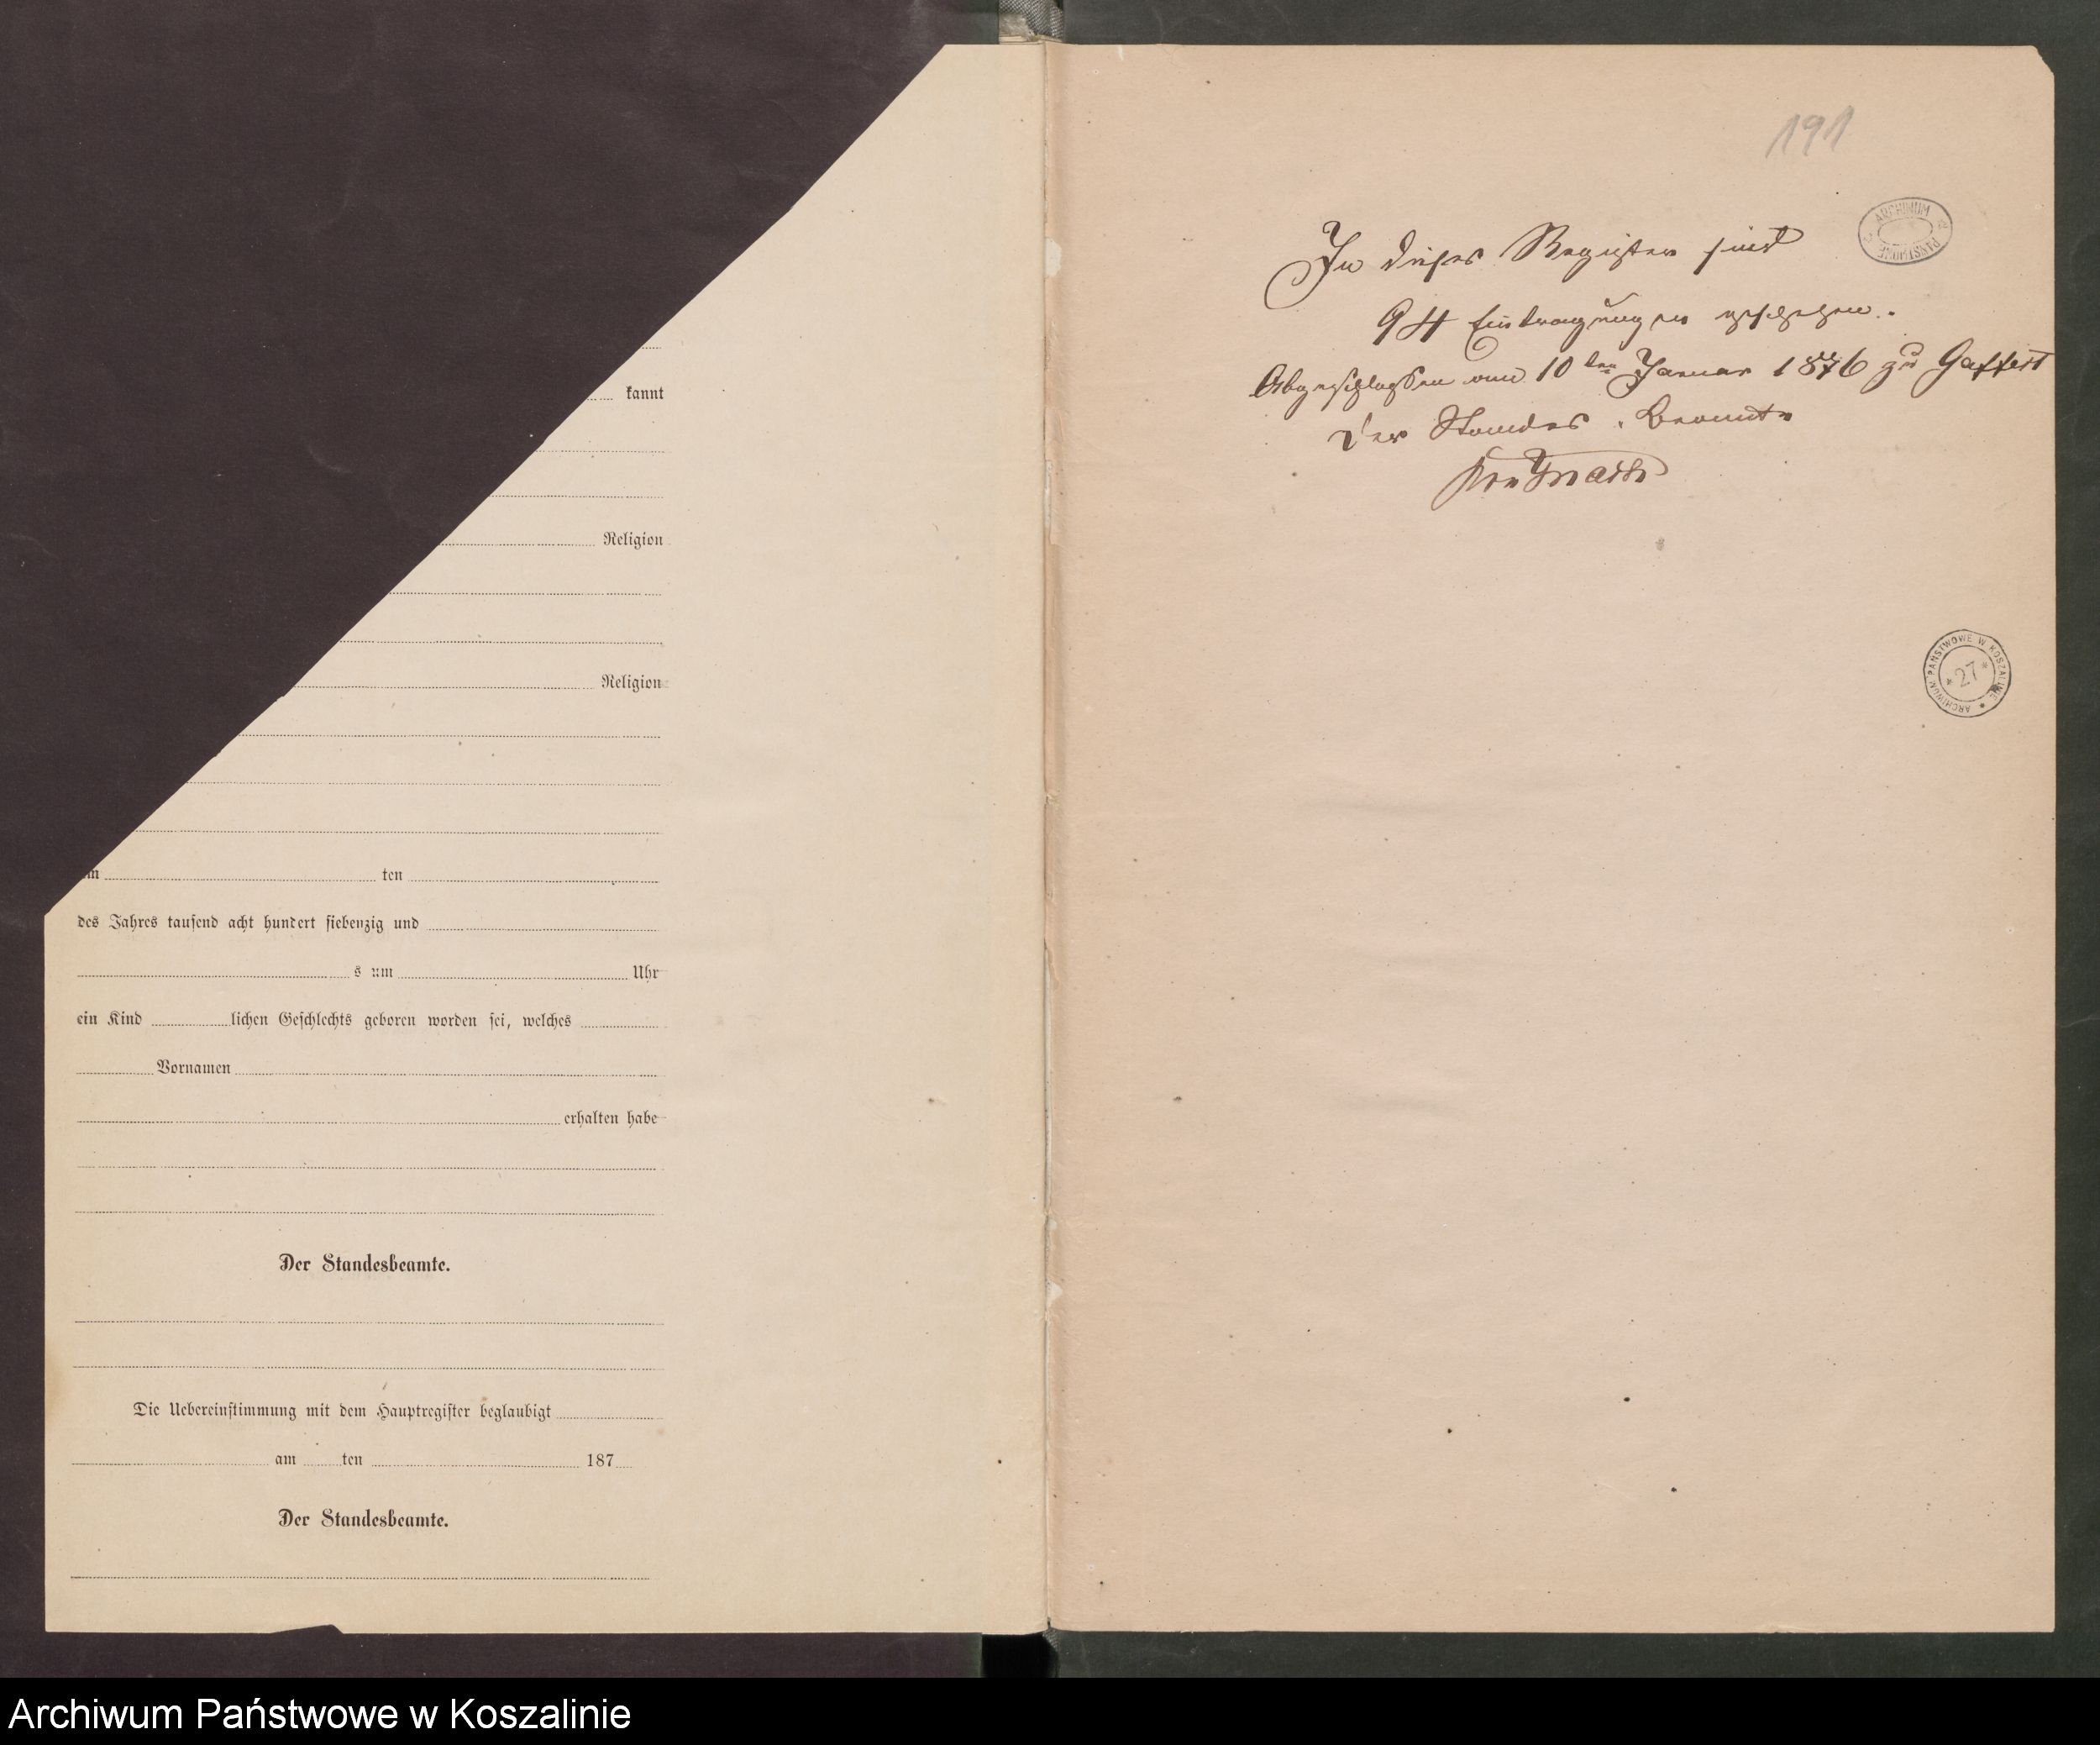 kannt
Religion
Religion
ten
des Jahres tausend acht hundert siebenzig und
s um Uhr
ein Kind lichen Geschlechts geboren worden sei, welches
Vornamen
erhalten habe
Der Standesbeamte.
Die Uebereinstimmung mit dem Hauptregister beglaubigt
am ten 187
Der Standesbeamte.
191
ARCHIWUM PAŃSTWOWE
In dieses Register sind
94 Eintragungen geschehen.
Abgeschlossen am 10ten Januar 1876 zu Gaffert
Der Standes. Beamte
ARCHIWUM PAŃSTWOWE W KOSZALINIE * 27 *
Archiwum Państwowe w Koszalinie